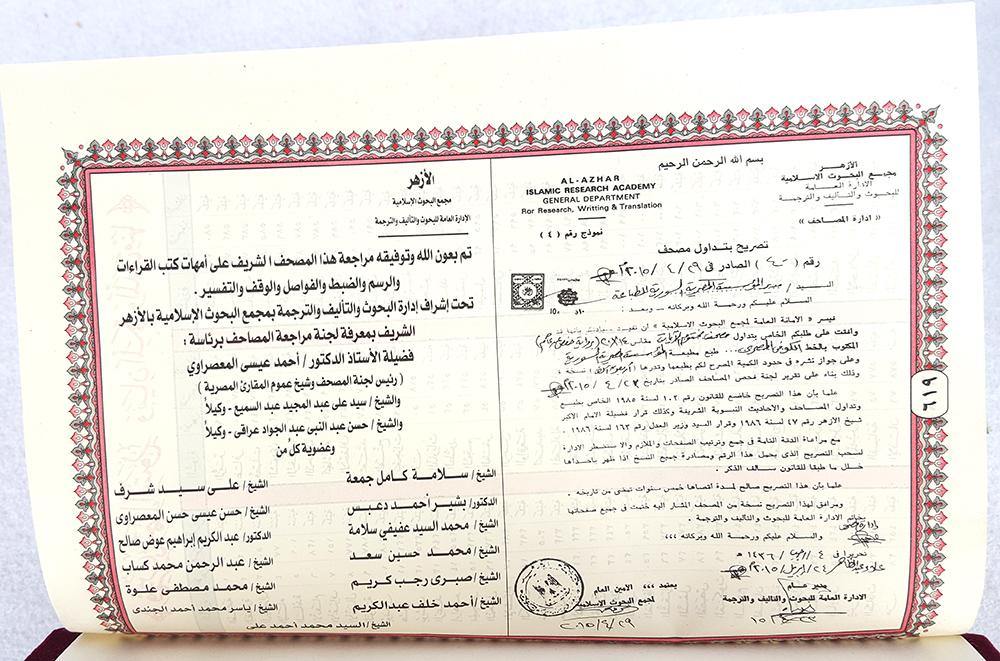 الأزهر
مجمع البحوث الإسلامية
الادارة العامة
للبحوث والتأليف والترجمة
« ادارة المصاحف »
بسم الله الرحمن الرحيم
AL-AZHAR
ISLAMIC RESEARCH ACADEMY
GENERAL DEPARTMENT
Ror Research, Writting & Translation
نموذج رقم ( ٤ )
تصريح بتداول مصحف
رقم ( ٤٠ ) الصادر فى ٢٩ / ٤ / ٢٠١٥
السيد /
السلام عليكم ورحمة الله وبركاته - وبعد :
فيسر « الامانة العامة لمجمع البحوث الاسلامية » ان تفيد سيادتكم بأنها قد
وافقت على طلبكم الخاص بتداول
المكتوب بالخط طبع بمطبعة
وعلى جواز نشره فى حدود الكمية المصرح لكم بطبعها وقدرها نسخة ،
وذلك بناء على تقرير لجنة فحص المصاحف الصادر بتاريخ ٢٣ / ٤ / ٢٠١٥
علما بأن هذا التصريح خاضع للقانون رقم ١٠٢ لسنة ١٩٨٥ الخاص بطبع
وتداول المصاحف والاحاديث النبوية الشريفة وكذلك قرار فضيلة الامام الاكبر
شيخ الأزهر رقم ٤٧ لسنة ١٩٨٦ وقرار السيد وزير العدل رقم ١٦٣ لسنة ١٩٨٦ .
مع مراعاة الدقة التامة فى جمع وترتيب الصفحات والملازم والا ستضطر الادارة
لسحب التصريح الذى يحمل هذا الرقم ومصادرة جميع النسخ اذا ظهر باحداها
خلل ما طبقا للقانون سالف الذكر .
علما بأن هذا التصريح صالح لمدة اقصاها خمس سنوات تمضى من تاريخه .
ومرافق لهذا التصريح نسخة من المصحف المشار اليه ختمت فى جميع صفحاتها
بخاتم الادارة العامة للبحوث والتأليف والترجمة .
والسلام عليكم ورحمة الله وبركاته ،،،
تحريرا فى ٤ / / ١٤٣٦ هـ
مدير عام
الادارة العامة للبحوث والتأليف والترجمة
يعتمد ،،، الأمين العام
لمجمع البحوث الاسلامية
٢٠١٥/٤/٢٩
٦١٩
الأزهر
مجمع البحوث الإسلامية
الإدارة العامة للبحوث والتأليف والترجمة
تم بعون الله وتوفيقه مراجعة هذا المصحف الشريف على أمهات كتب القراءات
والرسم والضبط والفواصل والوقف والتفسير .
تحت إشراف إدارة البحوث والتأليف والترجمة بمجمع البحوث الإسلامية بالأزهر
الشريف بمعرفة لجنة مراجعة المصاحف برئاسة :
فضيلة الأستاذ الدكتور / أحمد عيسى المعصراوي
( رئيس لجنة المصحف وشيخ عموم المقارئ المصرية )
والشيخ / سيد على عبد المجيد عبد السميع - وكيلاً
والشيخ / حسن عبد النبى عبد الجواد عراقى - وكيلاً
وعضوية كل من
الشيخ / سلامة كامل جمعة الشيخ / على سيد شرف
الدكتور / بشير أحمد دعبس الشيخ / حسن عيسى حسن المعصراوى
الشيخ / محمد السيد عفيفي سلامة الدكتور / عبد الكريم إبراهيم عوض صالح
الشيخ / محمد حسين سعد الشيخ / عبد الرحمن محمد كساب
الشيخ / صبرى رجب كريم الشيخ / محمد مصطفى علوة
الشيخ / أحمد خلف عبد الكريم الشيخ / ياسر محمد أحمد الجندى
الشيخ / السيد محمد أحمد على